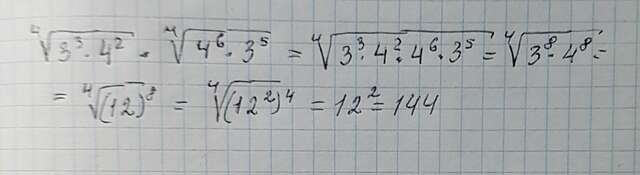 ∜(3³·4²) · ∜(4⁶·3⁵) = ∜(3³·4²·4⁶·3⁵) = ∜(3⁸·4⁸) =
= ∜(12)⁸ = ∜(12²)⁴ = 12² = 144